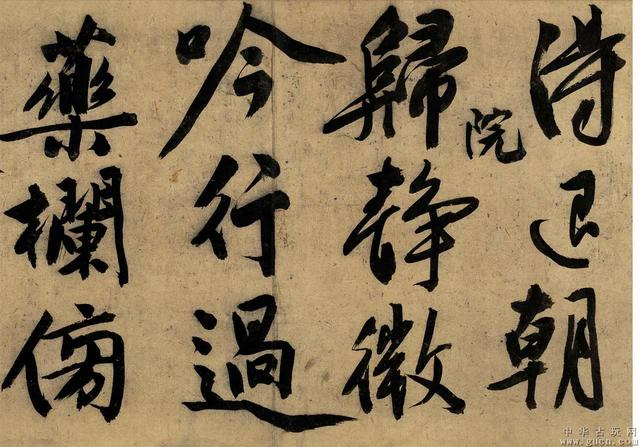 得退朝
院
歸静微
吟行過
藥欄傍
中华古玩网
www.gucn.com